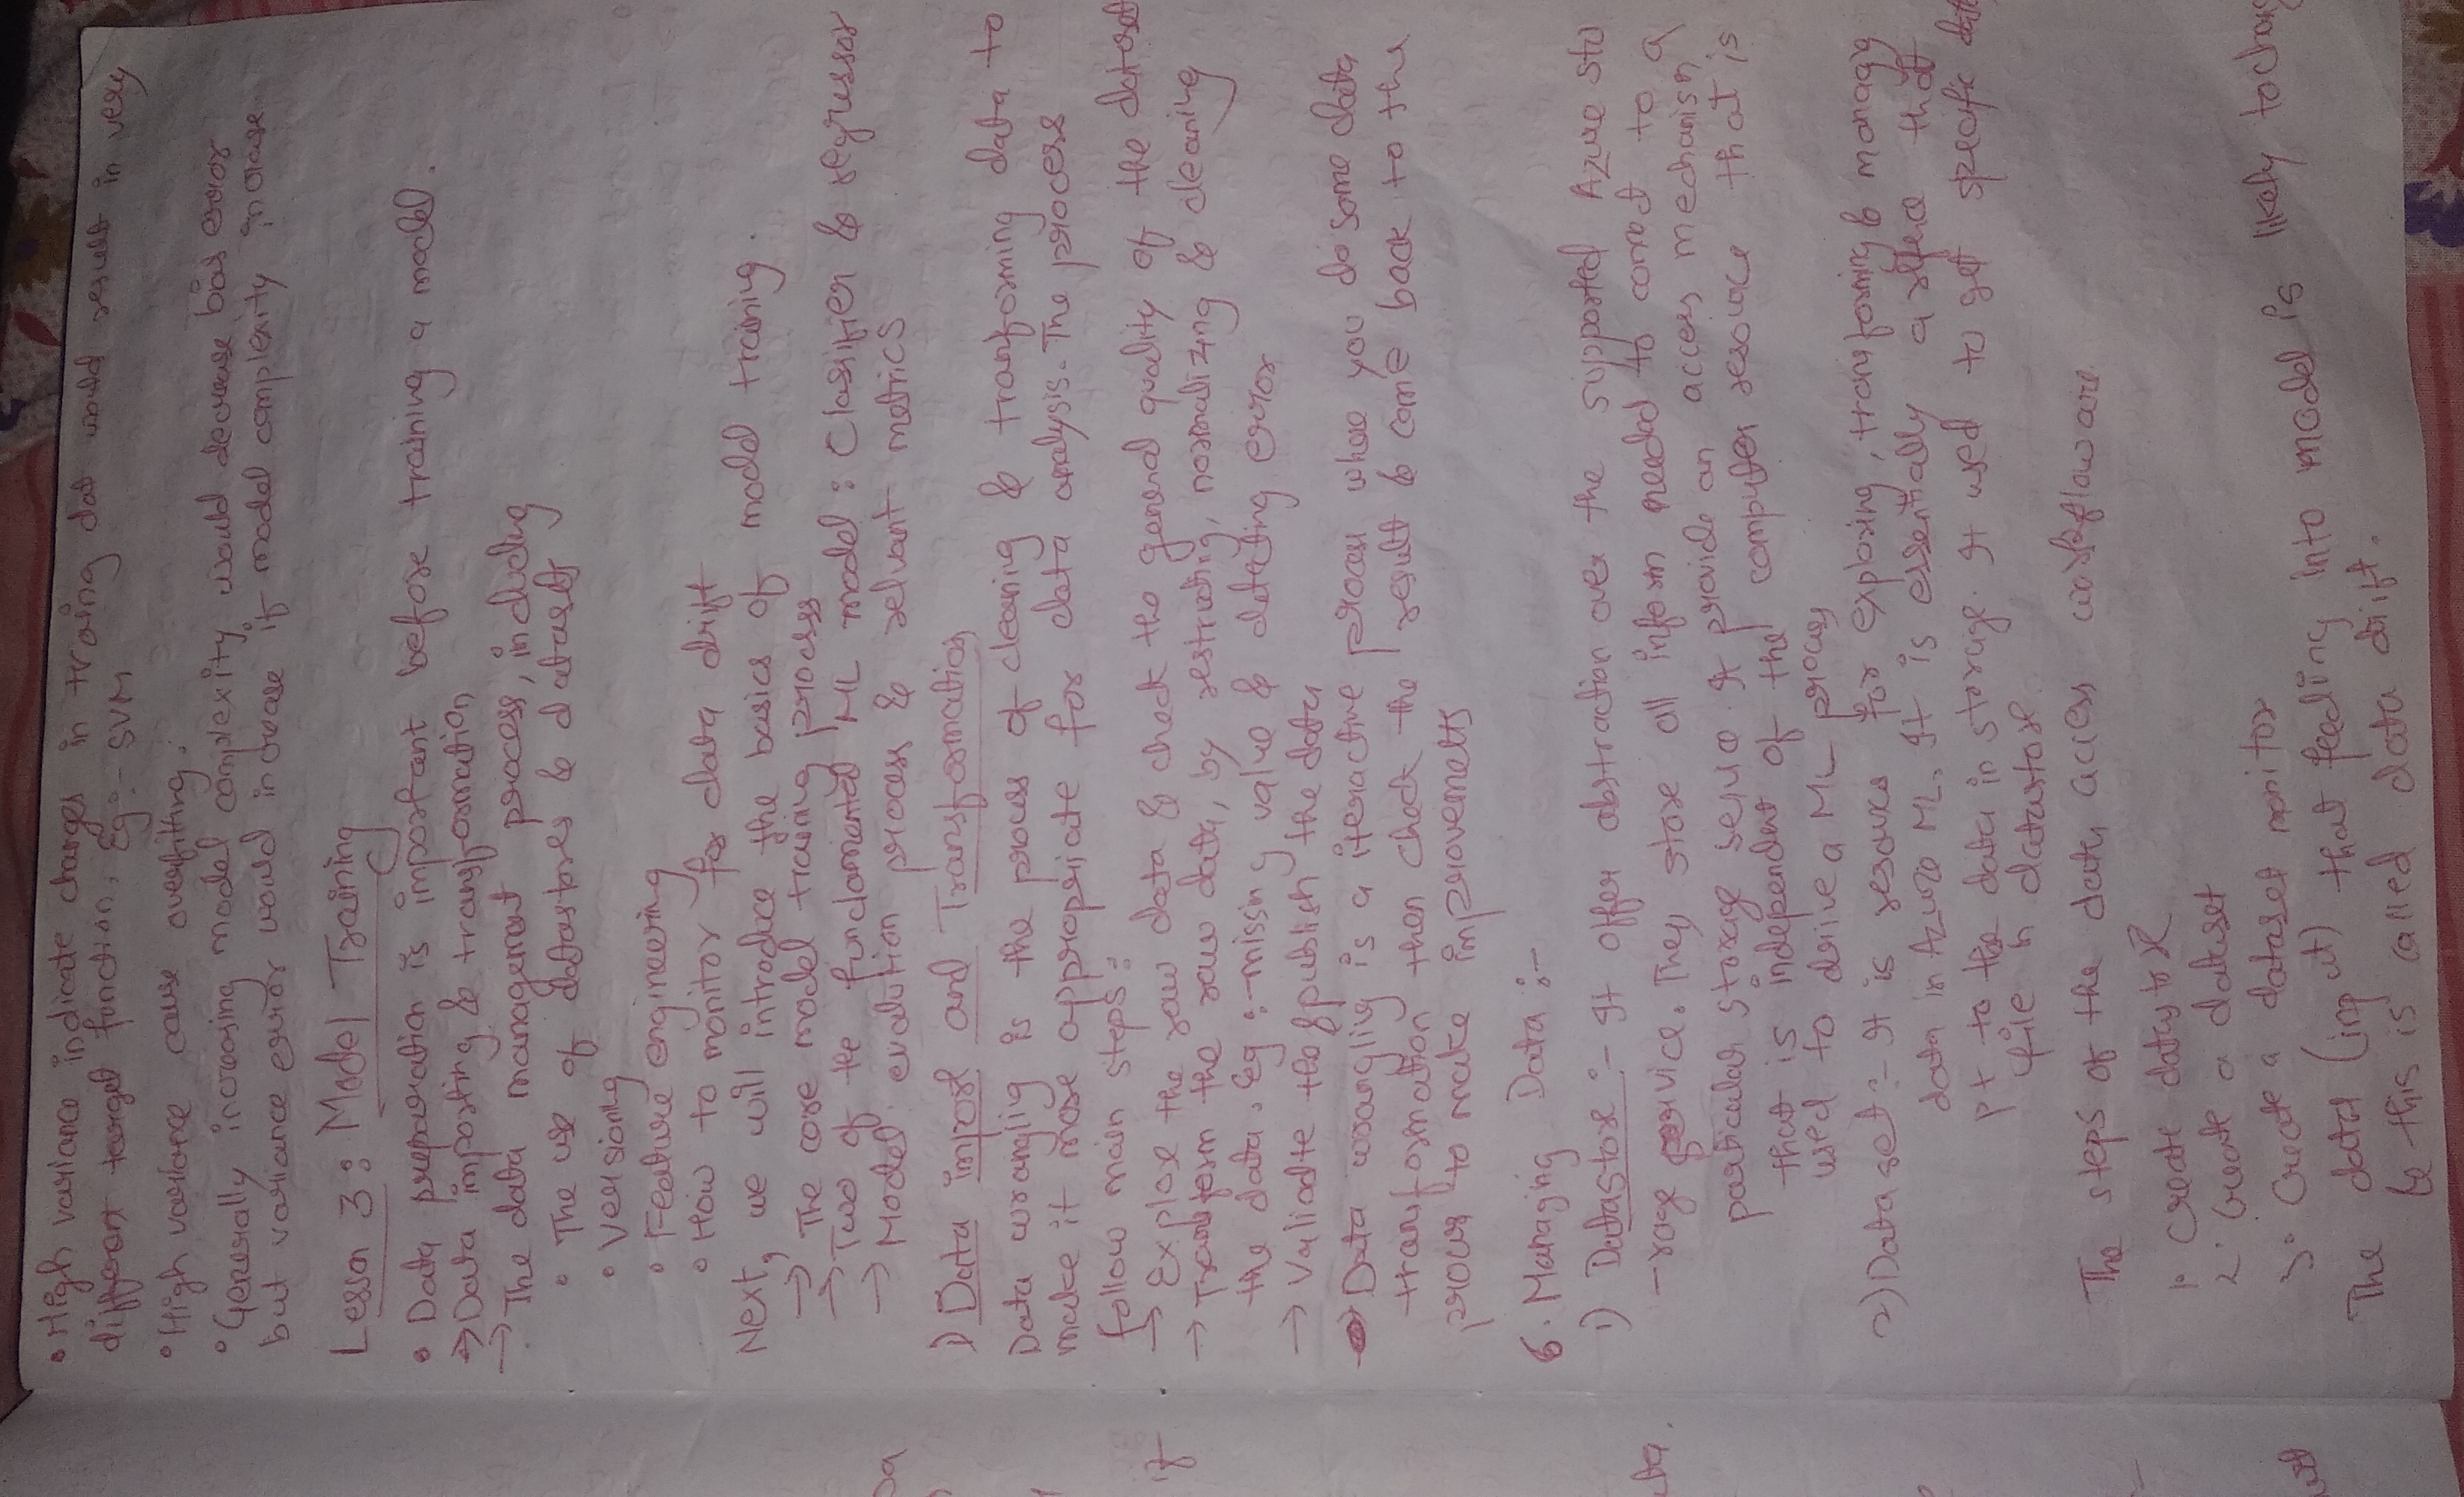 • High variance indicate changes in traing dat would result in very
different target function. Eg:- SVM
• High variance cause overfitting.
• Generally increasing model complexity would decrease bias error
but variance error would increase if model complexity increase
Lesson 3: Model Training
• Data preparation is important before training a model.
→ Data importing & transformation
→ The data management process, including
• The use of datastores & datasets
• Versioning
• Feature engineering
• How to monitor for data drift
Next, we will introduce the basics of model training.
→ The core model training process
→ Two of the fundamental ML model: Classifier & regressor
→ Model evalution process & relvant metrics
1) Data import and Transformation
Data wranglig is the process of cleaning & tranforming data to
make it more appropriate for data analysis. The process
follow main steps:
→ Explore the raw data & check the general quality of the dataset
→ Transform the raw data, by restructing, normalizing & cleaning
the data. Eg :- missing value & detecting error
→ Valiadte the & publish the data
→ Data wranglig is a iteractive process where you do some data
tranformation then check the result & come back to the
process to make improvemets
6. Managing Data :-
1) Datastore :- It offer abstraction over the supported Azure sto
-rage service. They store all inform needed to connect to a
particular storage service. It provide an access mechanism
that is independent of the computer resource that is
used to drive a ML process
2) Data set :- It is resource for exploring, transforming & managing
data in Azure ML. It is essentially a refrence that
pt to the data in storage. It used to get specific data
file in datastore.
The steps of the data access workflow are.
1. Create datastore
2. Create a dataset
3. Create a dataset monitor
The data (input) that feeding into model is likely to change
& this is called data drift.
if